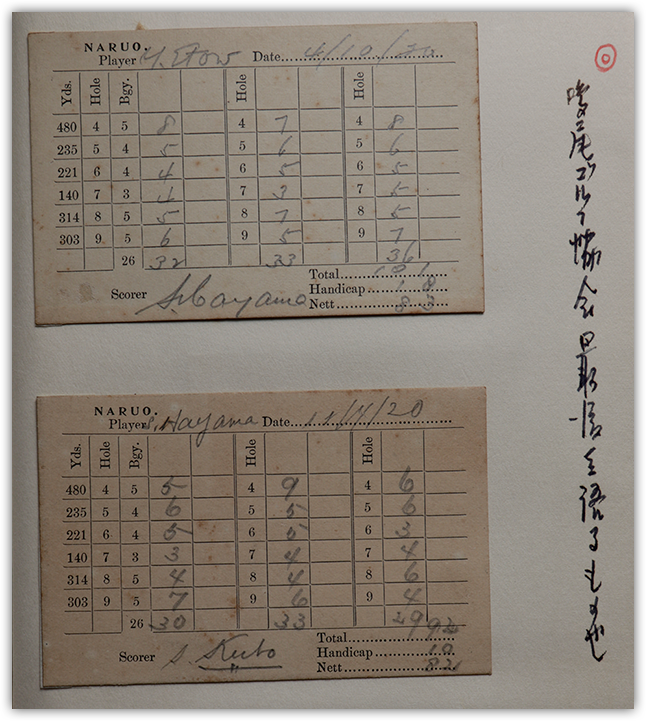 NARUO.
Player Y. Etow Date 4/10/20
Yds. Hole Bgy. Hole Hole
480 4 5 8 4 7 4 8
235 5 4 5 5 6 5 6
221 6 4 4 6 5 6 5
140 7 3 4 7 3 7 5
314 8 5 5 8 7 8 5
303 9 5 6 9 5 9 7
26 32 33 36
Total 101
Handicap 18
Nett 83
Scorer S. Hayama
NARUO.
Player S. Hayama Date
Yds. Hole Bgy. Hole Hole
480 4 5 5 4 9 4 6
235 5 4 6 5 5 5 6
221 6 4 5 6 5 6 3
140 7 3 3 7 4 7 4
314 8 5 4 8 4 8 6
303 9 5 7 9 6 9 4
26 30 33 29
Total 92
Handicap 10
Nett 82
Scorer S. Kubo
鳴尾ゴルフ協会最後を語るもの也